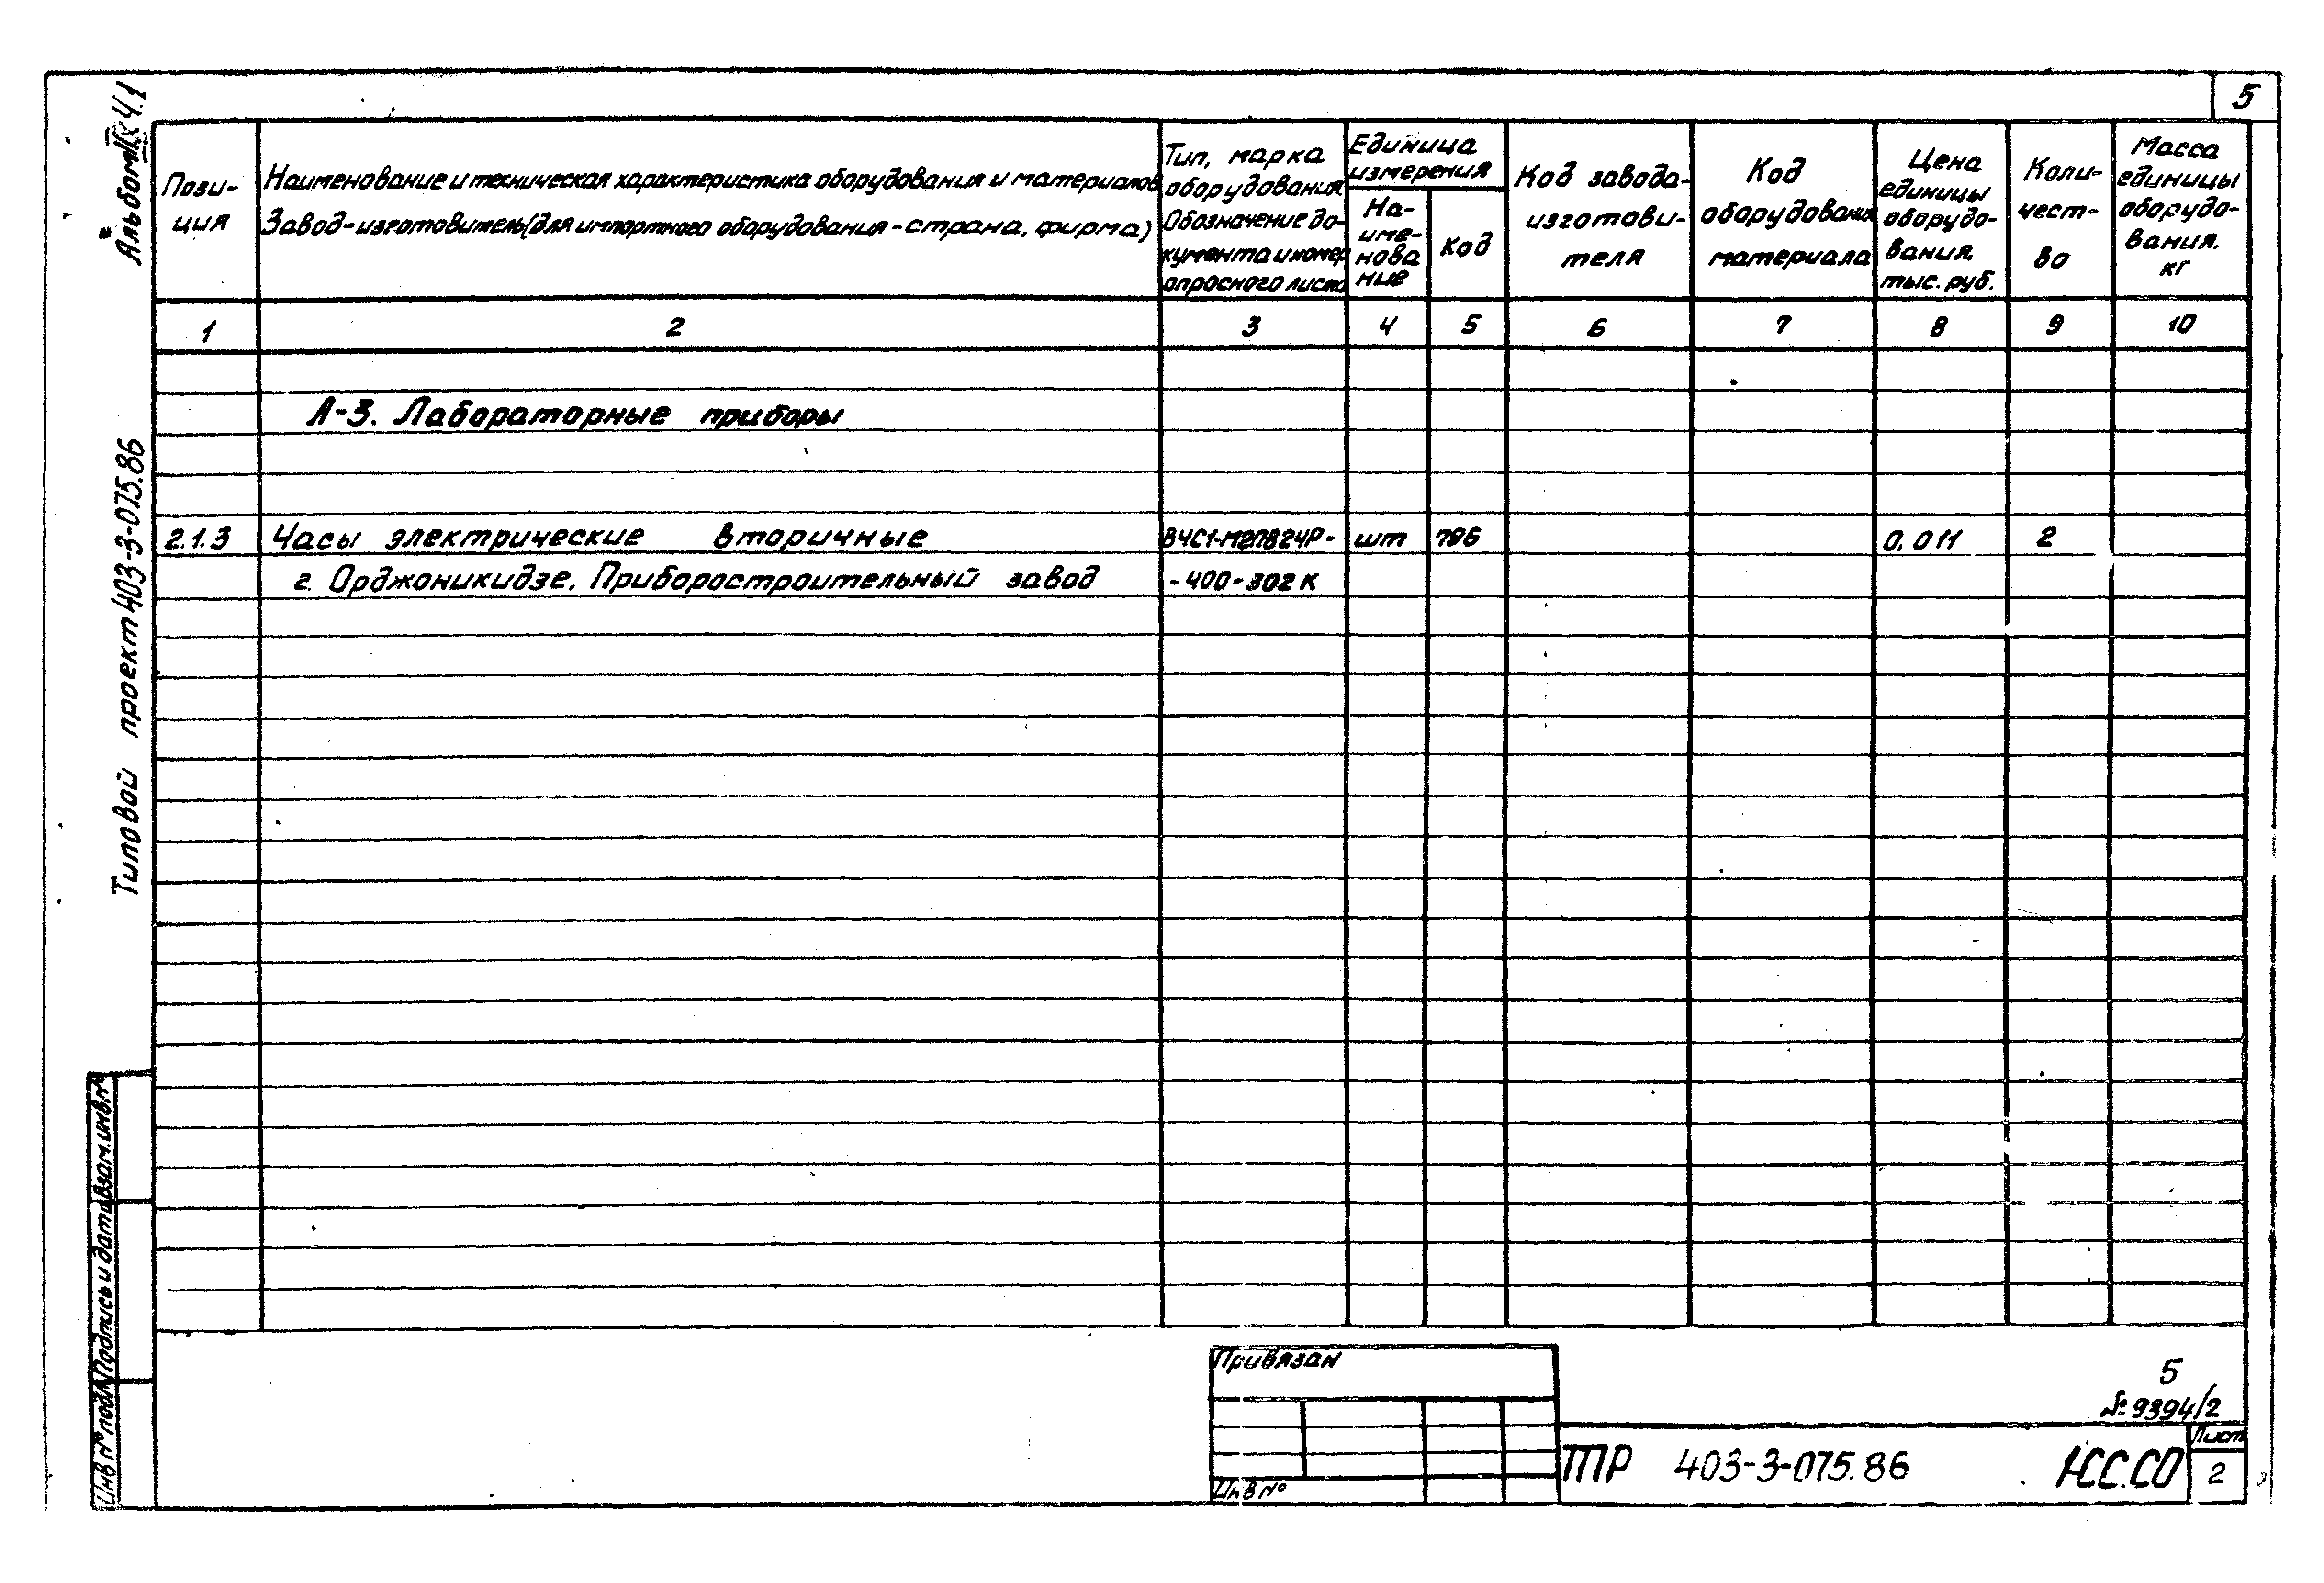 5
Альбом
Ч.1
Пози-
ция
Наименование и техническая характеристика оборудования и материалов
Завод-изготовитель (для импортного оборудования - страна, фирма)
Тип, марка
оборудования.
Обозначение до-
кумента и номер
опросного листа
Единица
измерения
На-
име-
нова
ние
Код
Код завода-
изготови-
теля
Код
оборудования
материала
Цена
единицы
оборудо-
вания.
тыс. руб.
Коли-
чест-
во
Масса
единицы
оборудо-
вания.
кг
1 2 3 4 5 6 7 8 9 10
А-3. Лабораторные приборы
2.1.3 Часы электрические вторичные шт 796 0.011 2
г. Орджоникидзе. Приборостроительный завод -400-302К
Типовой проект 403-3-075.86
Взам.инв.№
Подпись и дата
Инв № подл
Привязан
Инв №
5
№ 9394/2
ТР 403-3-075.86
НСС.СО
Лист
2